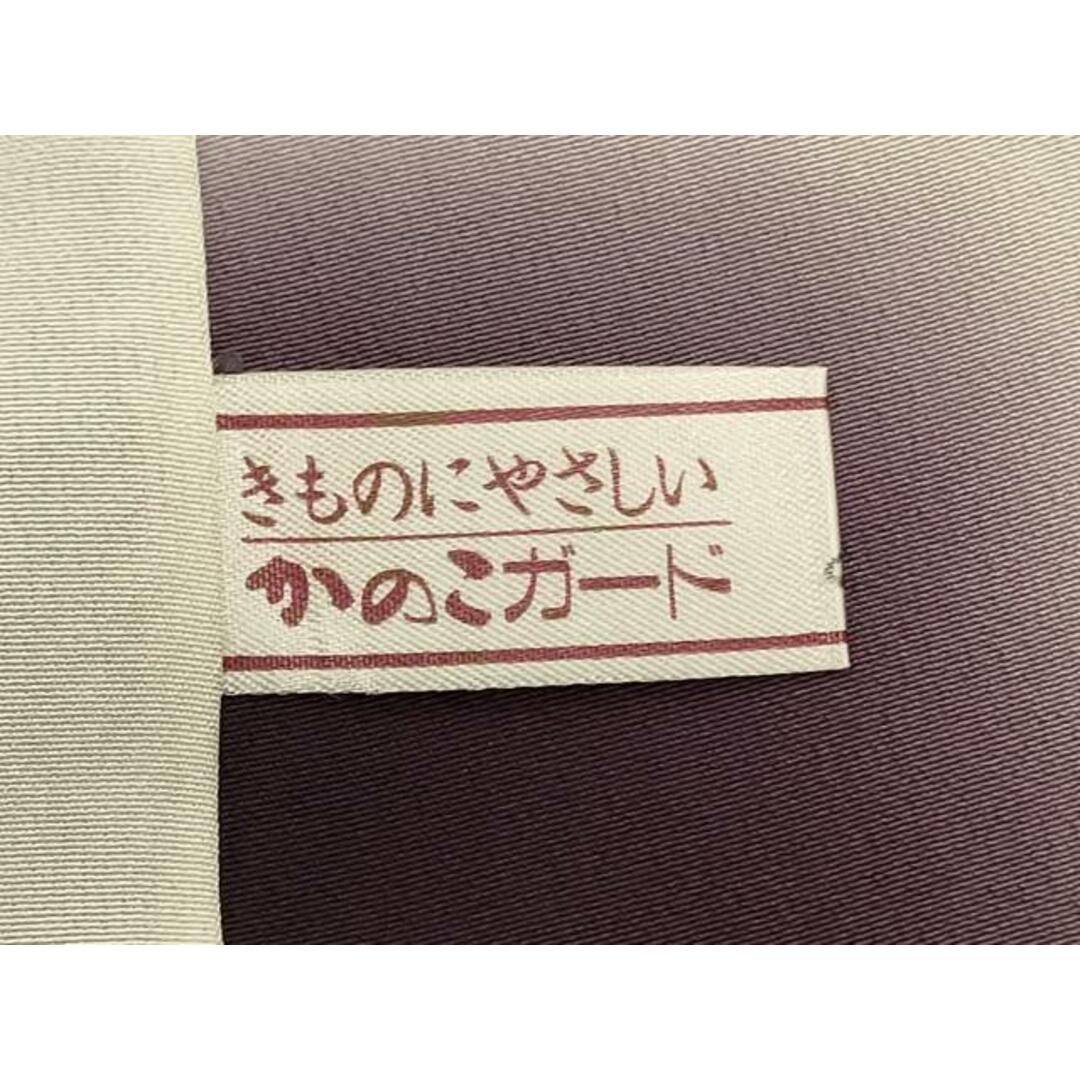 きものにやさしい
かのこガード